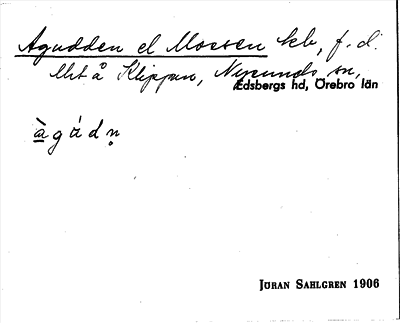 Agudden el Mossen kb, f.d.
llht å Klippan, Nysunds sn,
Edsbergs hd, Örebro län
àgádn̥
JÖRAN SAHLGREN 1906